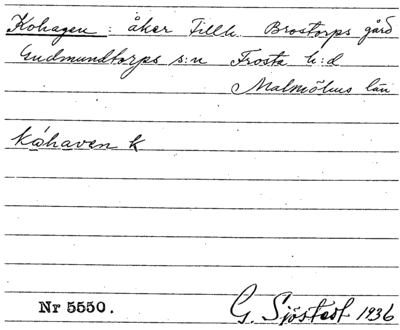 Kohagen : åker Tillh. Brostorps gård
Gudmundtorps s:n Frosta h:d
Malmöhus län
Kóhaven k
Nr 5550.
G. Sjöstedt 1936